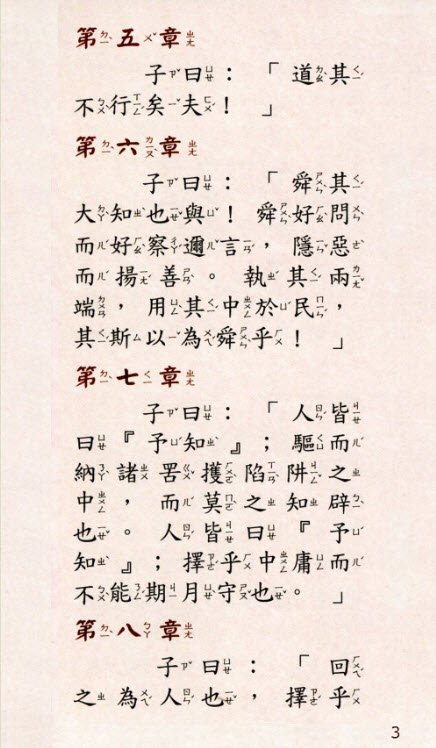 第五章
子曰：「道其
不行矣夫！」
第六章
子曰：「舜其
大知也與！舜好問
而好察邇言，隱惡
而揚善。執其兩
端，用其中於民，
其斯以為舜乎！」
第七章
子曰：「人皆
曰『予知』；驅而
納諸罟擭陷阱之
中，而莫之知辟
也。人皆曰『予
知』；擇乎中庸而
不能期月守也。」
第八章
子曰：「回
之為人也，擇乎
3